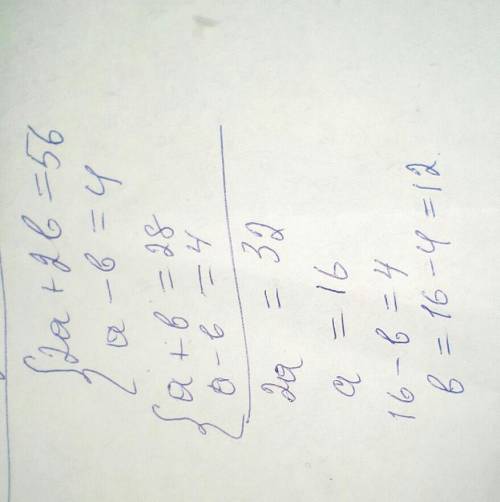 {2a + 2b = 56
a - b = 4
{a + b = 28
a - b = 4
2a = 32
a = 16
16 - b = 4
b = 16 - 4 = 12.